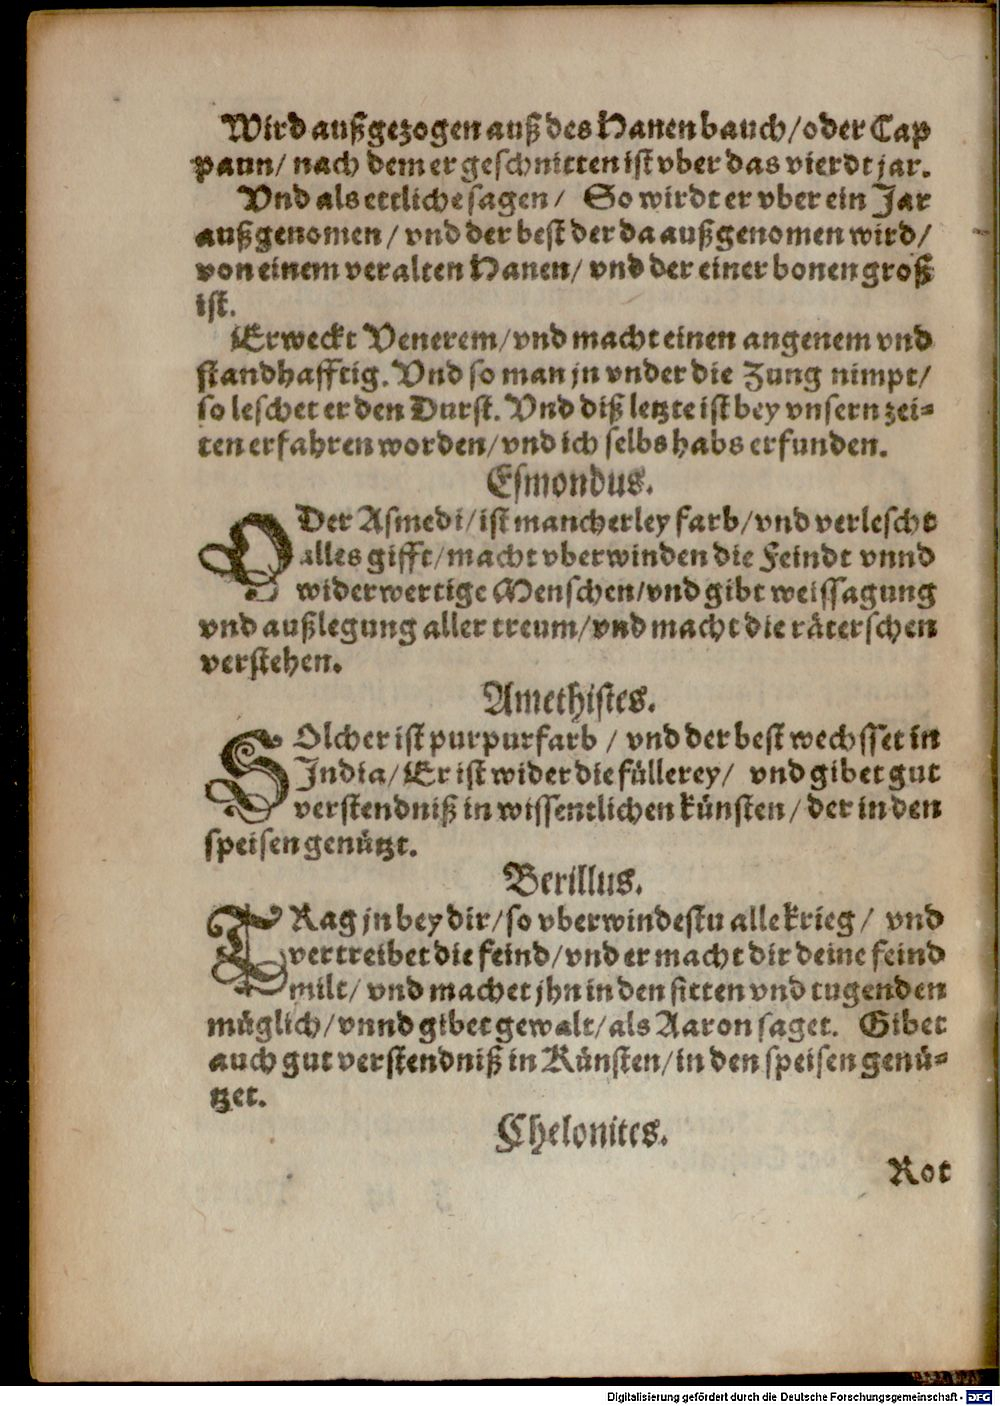 Wird außgezogen auß des Hanen bauch/ oder Cap
paun/ nach dem er geschnitten ist vber das vierdt jar.
Vnd als ettliche sagen/ So wirdt er vber ein Jar
außgenomen/ vnd der best der da außgenomen wird/
von einem veralten Hanen/ vnd der einer bonen groß
ist.
Erweckt Venerem/ vnd macht einen angenem vnd
standhafftig. Vnd so man jn vnder die Zung nimpt/
so leschet er den Durst. Vnd diß letzte ist bey vnsern zei-
ten erfahren worden/ vnd ich selbs habs erfunden.
Esmondus.
ODer Asmedi/ ist mancherley farb/ vnd verlescht
alles gifft/ macht vberwinden die Feindt vnnd
widerwertige Menschen/ vnd gibt weissagung
vnd außlegung aller treum/ vnd macht die räterschen
verstehen.
Amethistes.
SOlcher ist purpurfarb / vnd der best wechsset in
India/ Er ist wider die füllerey/ vnd gibet gut
verstendniß in wissentlichen künsten/ der in den
speisen genützt.
Berillus.
TRag jn bey dir/ so vberwindestu alle krieg/ vnd
vertreibet die feind/ vnd er macht dir deine feind
milt/ vnd machet jhn in den sitten vnd tugenden
müglich/ vnnd gibet gewalt/ als Aaron saget. Gibet
auch gut verstendniß in Künsten/ in den speisen genü-
tzet.
Chelonites.
Rot
Digitalisierung gefördert durch die Deutsche Forschungsgemeinschaft - DFG